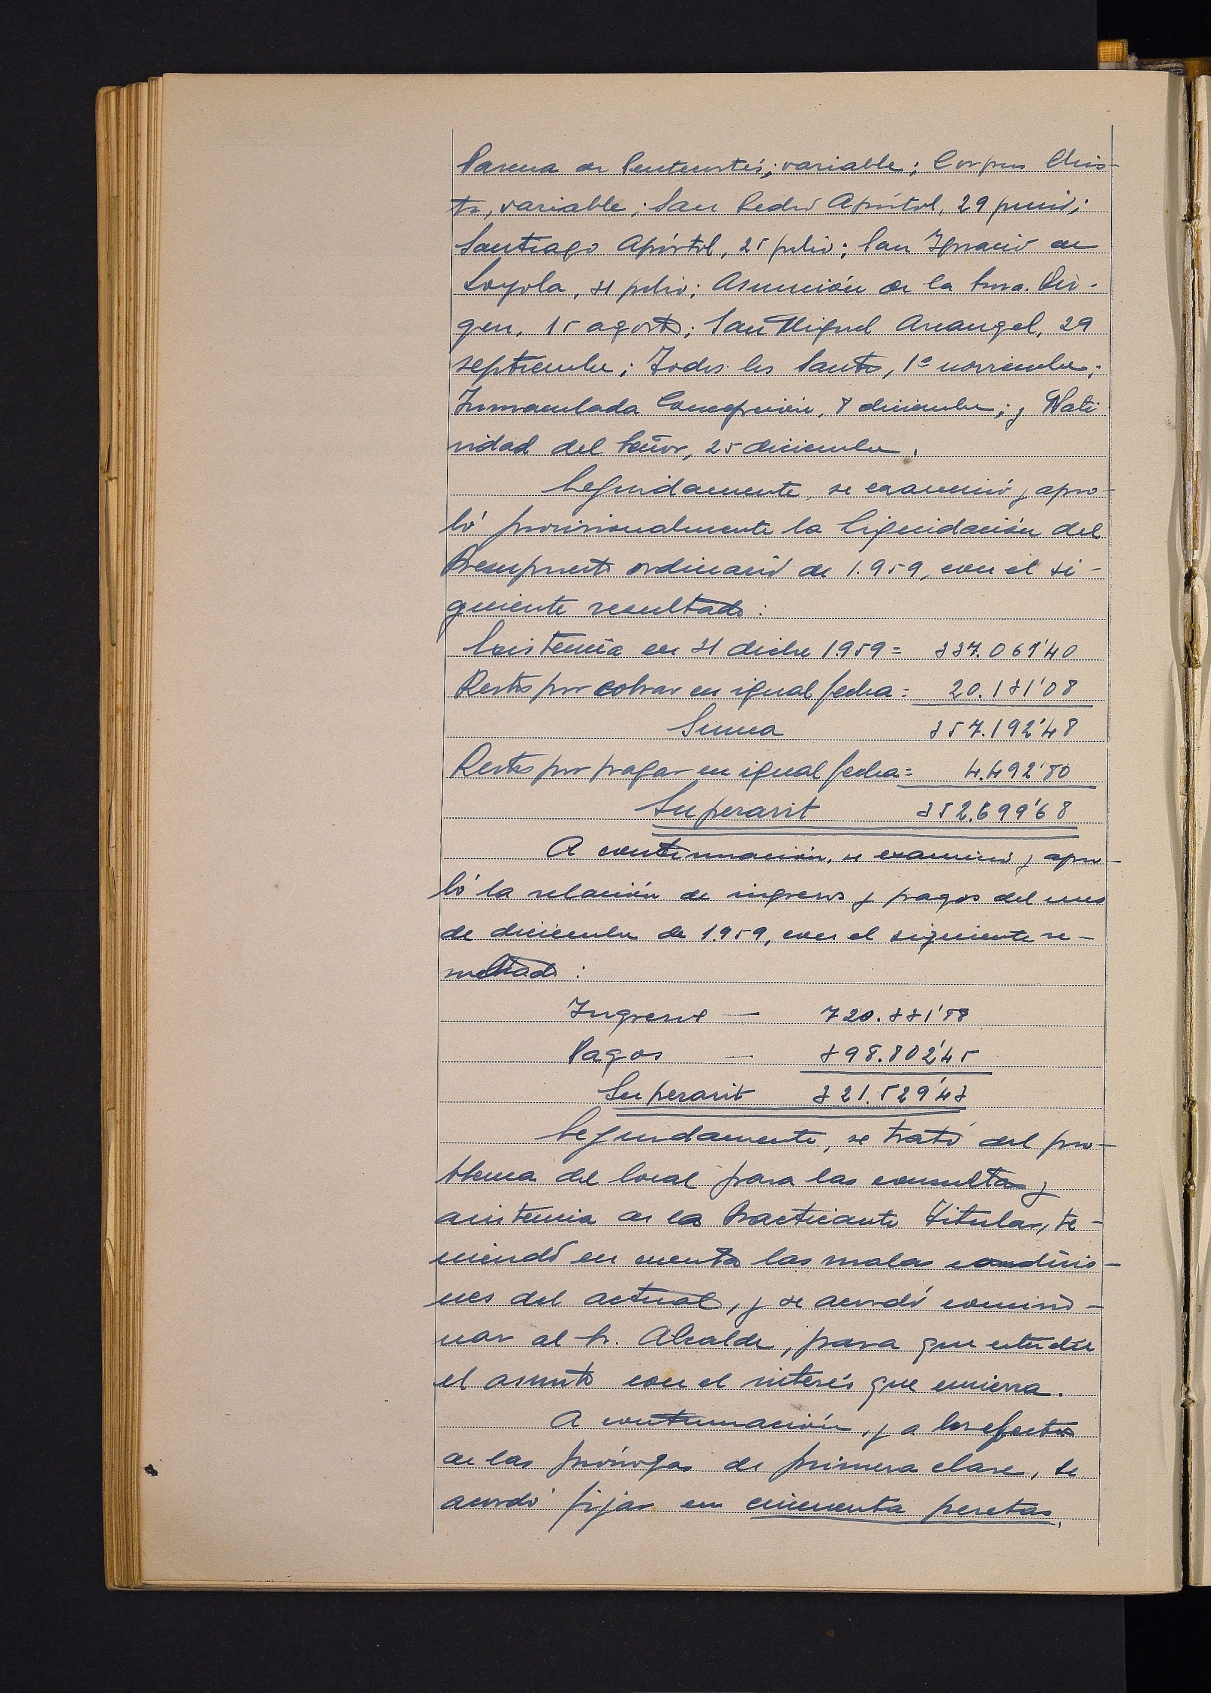 Pascua de Pentecostés; variable; Corpus Chris-
to, variable; San Pedro Apóstol, 29 junio;
Santiago Apóstol, 25 julio; San Ignacio de
Loyola, 31 julio; Asunción de la Sma. Vir-
gen, 15 agosto; San Miguel Arcangel, 29
septiembre; Todos los Santos, 1º noviembre;
Inmaculada Concepción, 8 diciembre; y Nati
vidad del Señor, 25 diciembre.
Seguidamente, se examinó y apro-
bó provisionalmente la liquidación del
Presupuesto ordinario de 1.959, con el si-
guiente resultado:
Existencia en 31 dicbre 1.959= 337.061'40
Restos por cobrar en igual fecha= 20.131'08
Suma 357.192'48
Restos por pagar en igual fecha= 4.492'80
Superavit 352.699'68
A continuación, se examinó y apro-
bó la relación de ingresos y pagos del mes
de diciembre de 1.959, con el siguiente re-
sultado:
Ingresos — 720.331'88
Pagos — 398.802'45
Superavit 321.529'43
Seguidamente, se trató del pro-
blema del local para las consultas y
asistencia de la Practicante Titular, te-
niendo en cuenta las malas condicio-
nes del actual, y se acordó comisio-
nar al Sr. Alcalde, para que estudie
el asunto con el interés que encierra.
A continuación, y a los efectos
de las prórrogas de primera clase, se
acordó fijar en cincuenta pesetas,